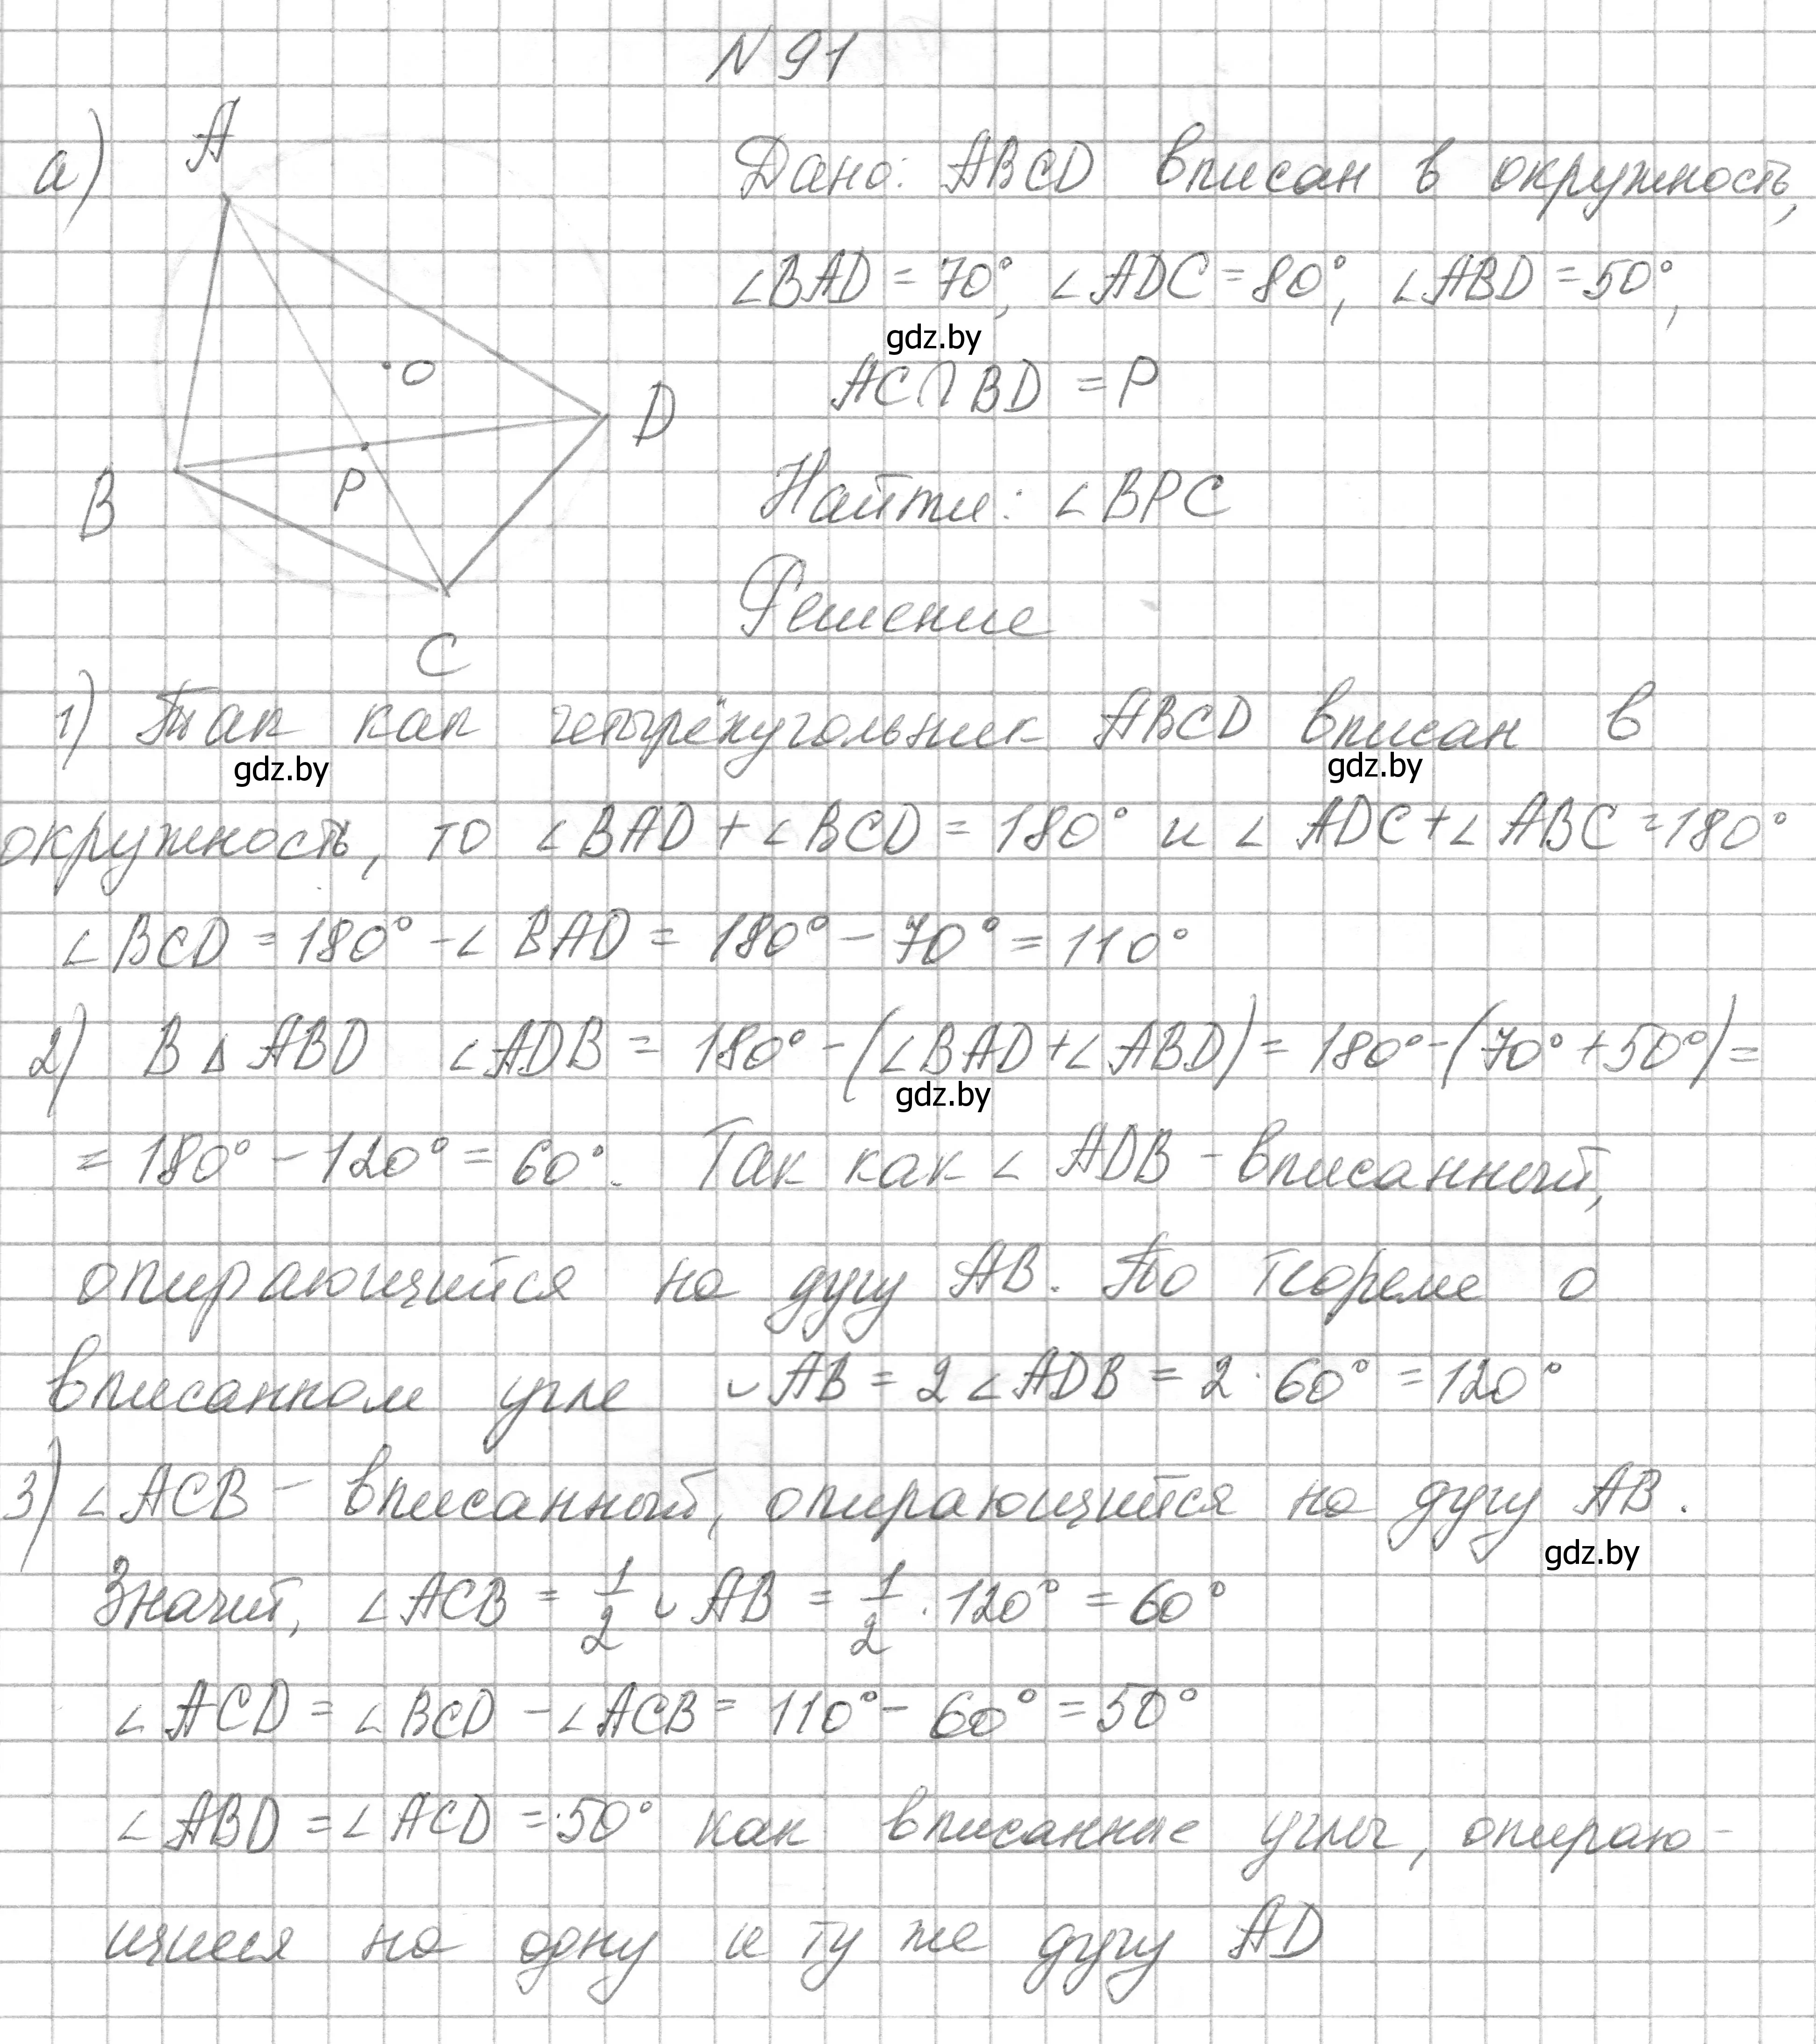 N 91
а)
A
Дано: ABCD вписан в окружность,
∠BAD = 70°, ∠ADC = 80°, ∠ABD = 50°,
gdz.by
O
AC∩BD = P
D
P
B
Найти: ∠BPC
Решение
C
1) Так как четырёхугольник ABCD вписан в
gdz.by gdz.by
окружность, то ∠BAD + ∠BCD = 180° и ∠ADC + ∠ABC = 180°
∠BCD = 180° - ∠BAD = 180° - 70° = 110°
2) В △ABD ∠ADB = 180° - (∠BAD + ∠ABD) = 180° - (70° + 50°) =
gdz.by
= 180° - 120° = 60°. Так как ∠ADB - вписанный,
опирающийся на дугу AB. По теореме о
вписанном угле ◡AB = 2∠ADB = 2 · 60° = 120°
3) ∠ACB - вписанный, опирающийся на дугу AB.
gdz.by
Значит, ∠ACB = 1/2 ◡AB = 1/2 · 120° = 60°
∠ACD = ∠BCD - ∠ACB = 110° - 60° = 50°
∠ABD = ∠ACD = 50° как вписанные углы, опираю-
щиеся на одну и ту же дугу AD